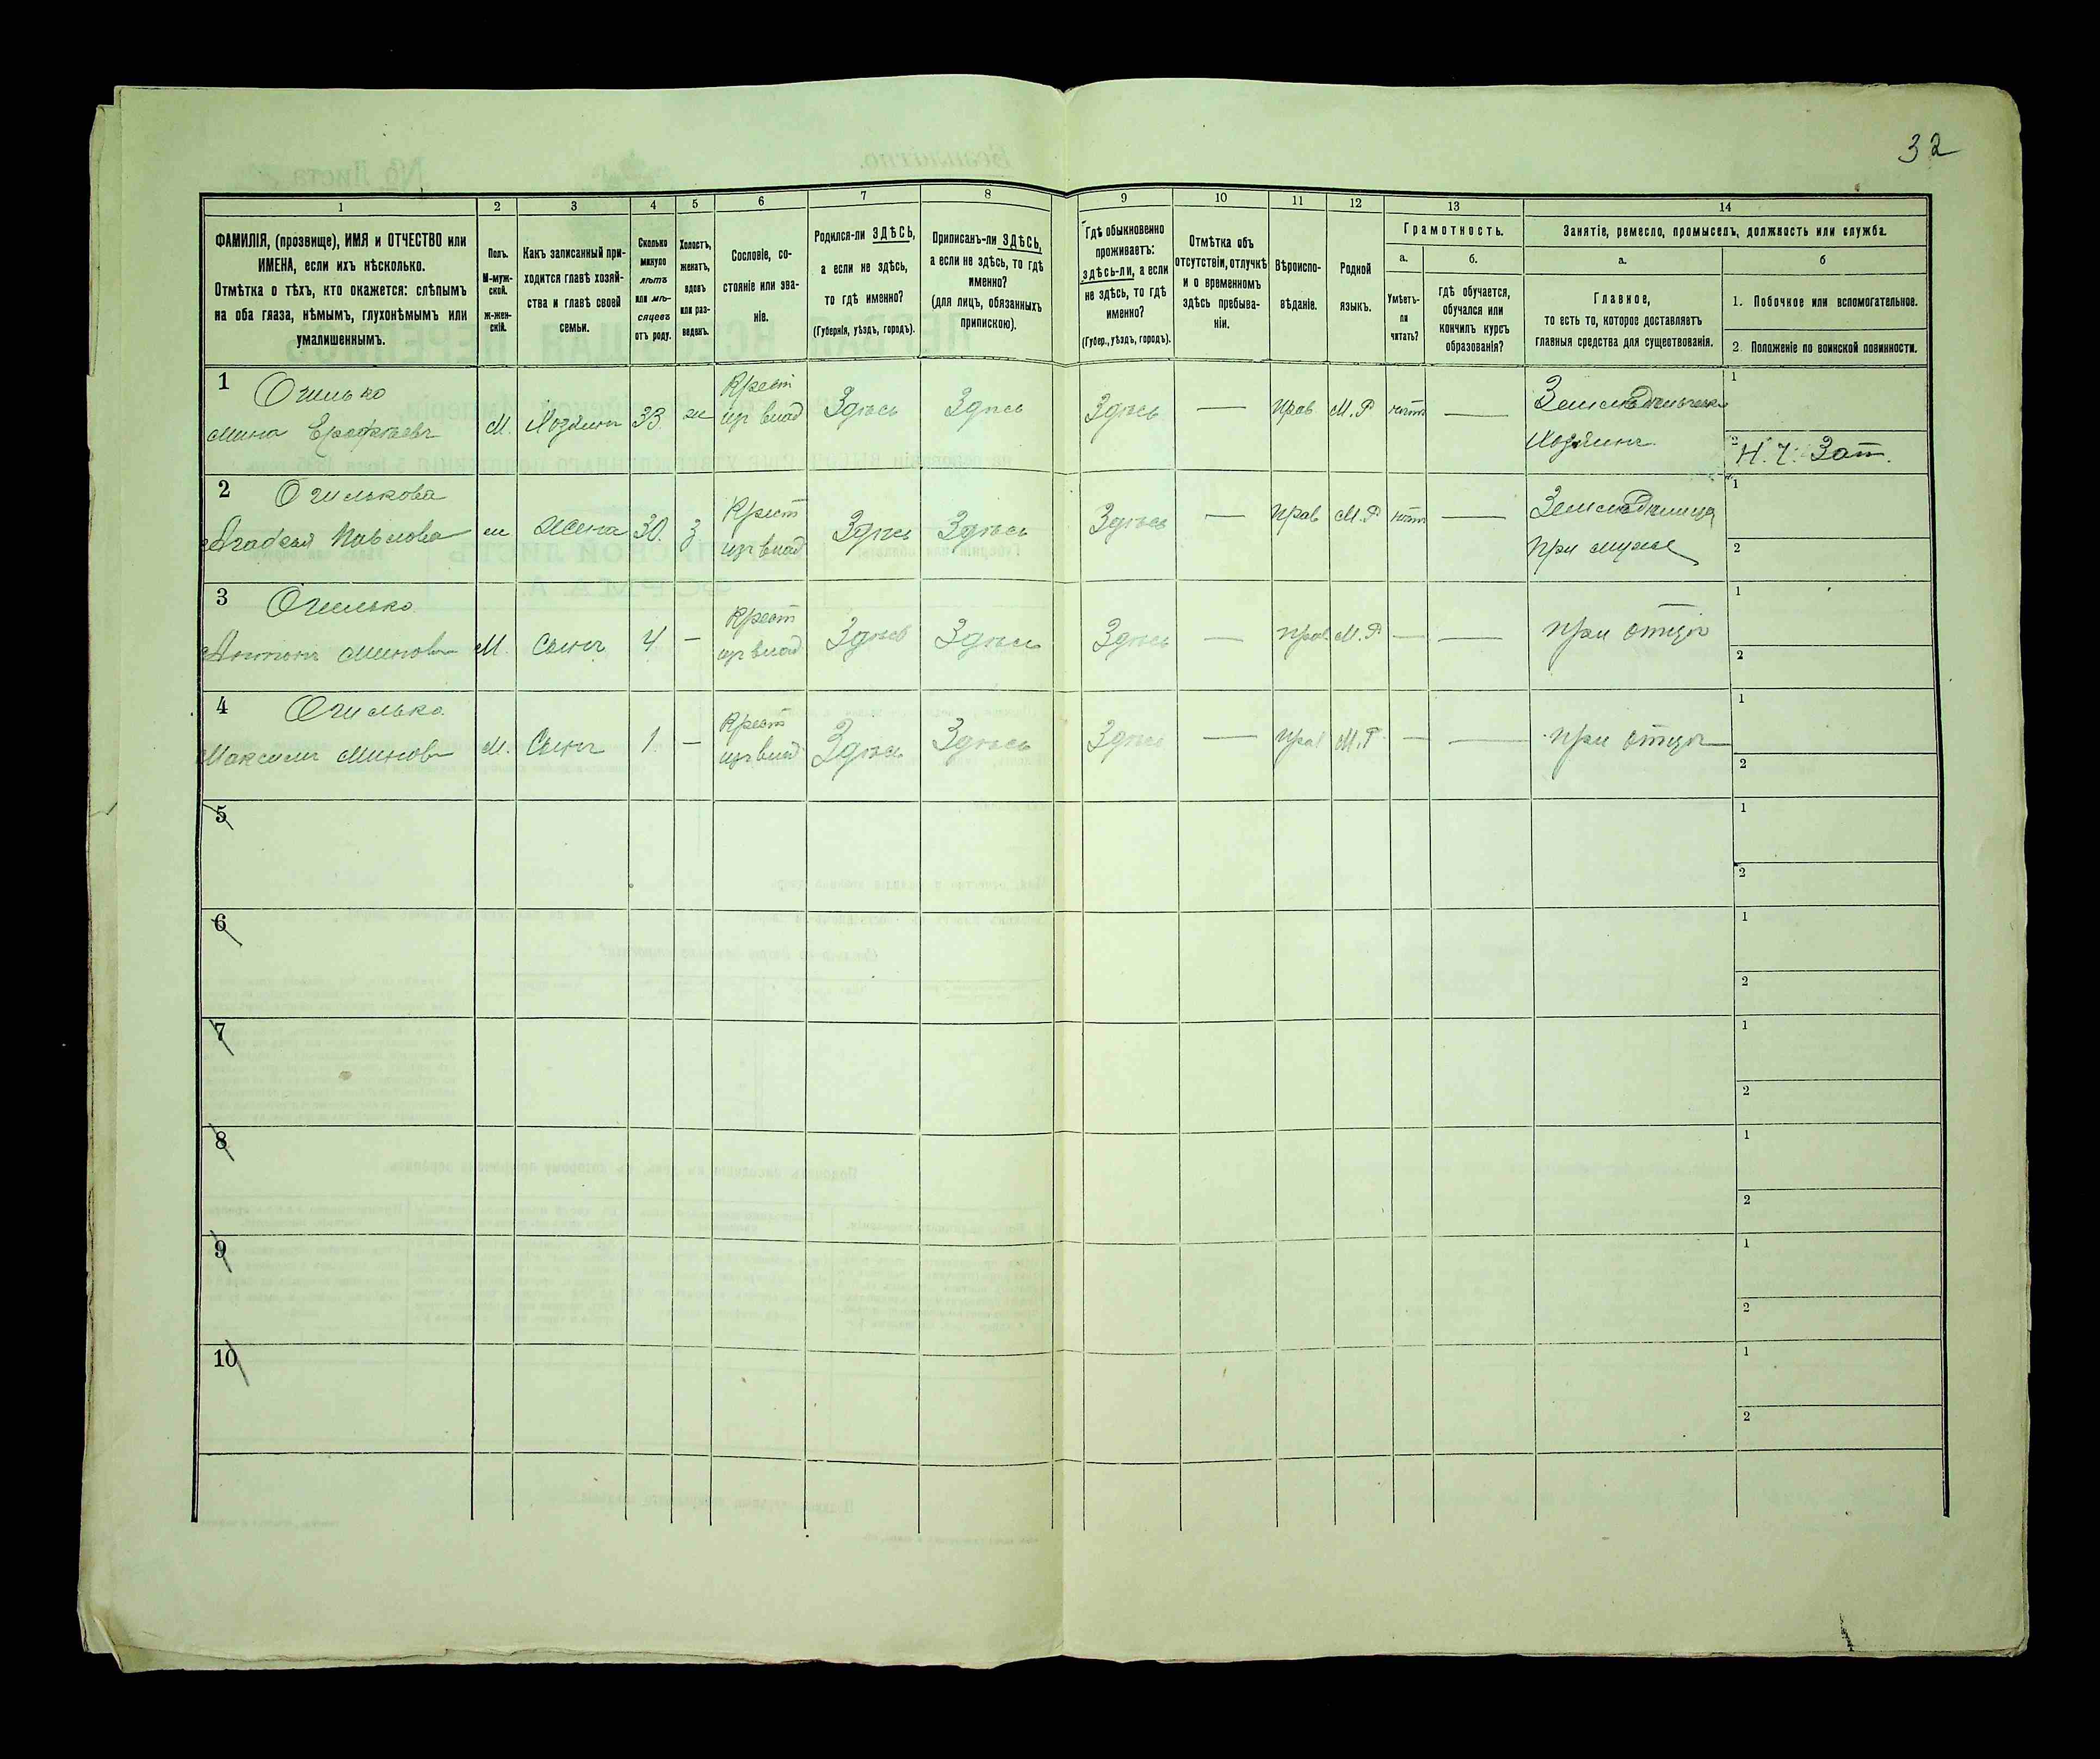 32
1
2
3
4
5
6
7
8
9
10
11
12
13
14
ФАМИЛІЯ, (прозвище), ИМЯ и ОТЧЕСТВО или
ИМЕНА, если ихъ нѣсколько.
Отмѣтка о тѣхъ, кто окажется: слѣпымъ
на оба глаза, нѣмымъ, глухонѣмымъ или
умалишеннымъ.
Полъ.
М-муж-
ской.
ж-жен-
скій.
Какъ записанный при-
ходится главѣ хозяй-
ства и главѣ своей
семьи.
Сколько
минуло
лѣтъ
или мѣ-
сяцевъ
отъ роду.
Холостъ,
женатъ,
вдовъ
или раз-
веденъ.
Сословіе, со-
стояніе или зва-
ніе.
Родился-ли ЗДѢСЬ,
а если не здѣсь,
то гдѣ именно?
(Губернія, уѣздъ, городъ).
Приписанъ-ли ЗДѢСЬ,
а если не здѣсь, то гдѣ
именно?
(для лицъ, обязанныхъ
припискою).
Гдѣ обыкновенно
проживаетъ:
здѣсь-ли, а если
не здѣсь, то гдѣ
именно?
(Губер., уѣздъ, городъ).
Отмѣтка объ
отсутствіи, отлучкѣ
и о временномъ
здѣсь пребыва-
ніи.
Вѣроиспо-
вѣданіе.
Родной
языкъ.
Грамотность.
а.
Умѣетъ-
ли
читать?
б.
гдѣ обучается,
обучался или
кончилъ курсъ
образованія?
Занятіе, ремесло, промыселъ, должность или служба.
а.
Главное,
то есть то, которое доставляетъ
главныя средства для существованія.
б
1. Побочное или вспомогательное.
2. Положеніе по воинской повинности.
1 Огилько
Мина Ерофѣевъ М. Хозяинъ 33 ж Крест
изъ влад Здѣсь Здѣсь Здѣсь — прав М.Р нѣтъ — Земледѣлецъ
Хозяинъ 1
2 Н. Ч. Зап.
2 Огилькова
Агафья Павлова ж Жена 30. з Крест
изъ влад Здѣсь Здѣсь Здѣсь — прав М.Р нѣтъ — Земледѣлица
При мужѣ 1
2
3 Огилько
Антонъ Миновъ М. Сынъ 4 — Крест
изъ влад Здѣсь Здѣсь Здѣсь — прав М.Р — — при отцѣ 1
2
4 Огилько
Максимъ Миновъ М. Сынъ 1 — Крест
изъ влад Здѣсь Здѣсь Здѣсь — прав М.Р — — при отцѣ 1
2
5 1
2
6 1
2
7 1
2
8 1
2
9 1
2
10 1
2